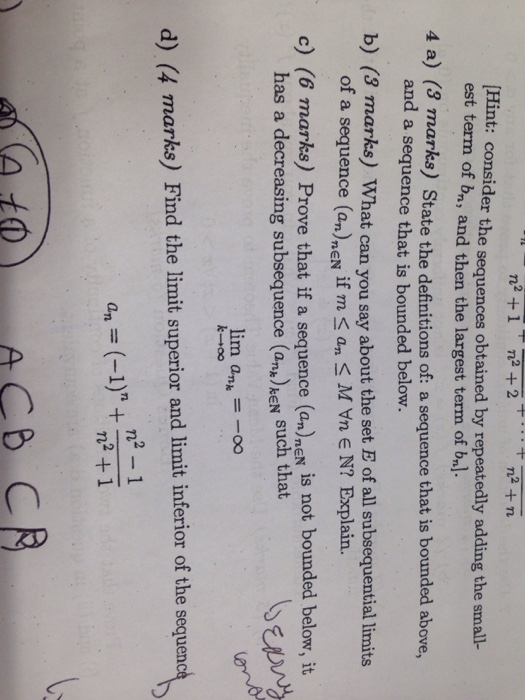 n² + 1 + n² + 2 + . . . + n² + n
[Hint: consider the sequences obtained by repeatedly adding the small-
est term of bₙ, and then the largest term of bₙ].
4 a) (3 marks) State the definitions of: a sequence that is bounded above,
and a sequence that is bounded below.
b) (3 marks) What can you say about the set E of all subsequential limits
of a sequence (aₙ)ₙ∈ℕ if m ≤ aₙ ≤ M ∀n ∈ ℕ? Explain.
c) (6 marks) Prove that if a sequence (aₙ)ₙ∈ℕ is not bounded below, it
has a decreasing subsequence (aₙₖ)ₖ∈ℕ such that
lim aₙₖ = −∞
k→∞
d) (4 marks) Find the limit superior and limit inferior of the sequence
aₙ = (−1)ⁿ + (n² − 1)/(n² + 1)
A ≠ ∅ A C B C B